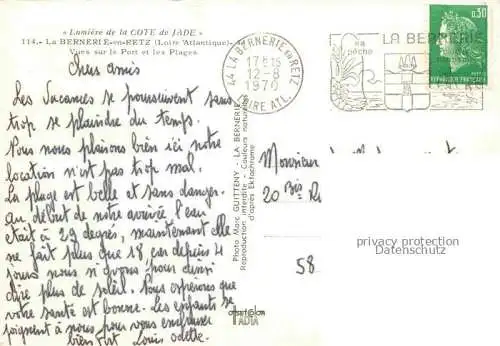 « Lumière de la COTE de JADE »
114.- La BERNERIE-en-RETZ (Loire Atlantique)
Vues sur le Port et les Plages
Chers amis
Les Vacances se poursuivent sans
trop se plaindre du temps.
Nous nous plaisons bien ici notre
location n'est pas trop mal.
La plage est belle et sans danger.
Au début de notre arrivée l'eau
était à 29 degrés, maintenant elle
ne fait plus que 18 car depuis 4
jours nous n'avons pour ainsi
dire plus de soleil. Nous espérons que
votre santé est bonne. Les enfants se
joignent à nous pour vous embrasser
bien fort Louis Odette.
Photo Marc GUITTENY - LA BERNERIE
Reproduction interdite - Couleurs naturelles
d'après Ektachrome
44 LA BERNERIE EN RETZ
17H15
12-8
1970
LOIRE ATL.
sa
pêche
LA BERNERIE
0,30
REPUBLIQUE FRANCAISE
Monsieur
20 Bis R
58
privacy protection
Datenschutz